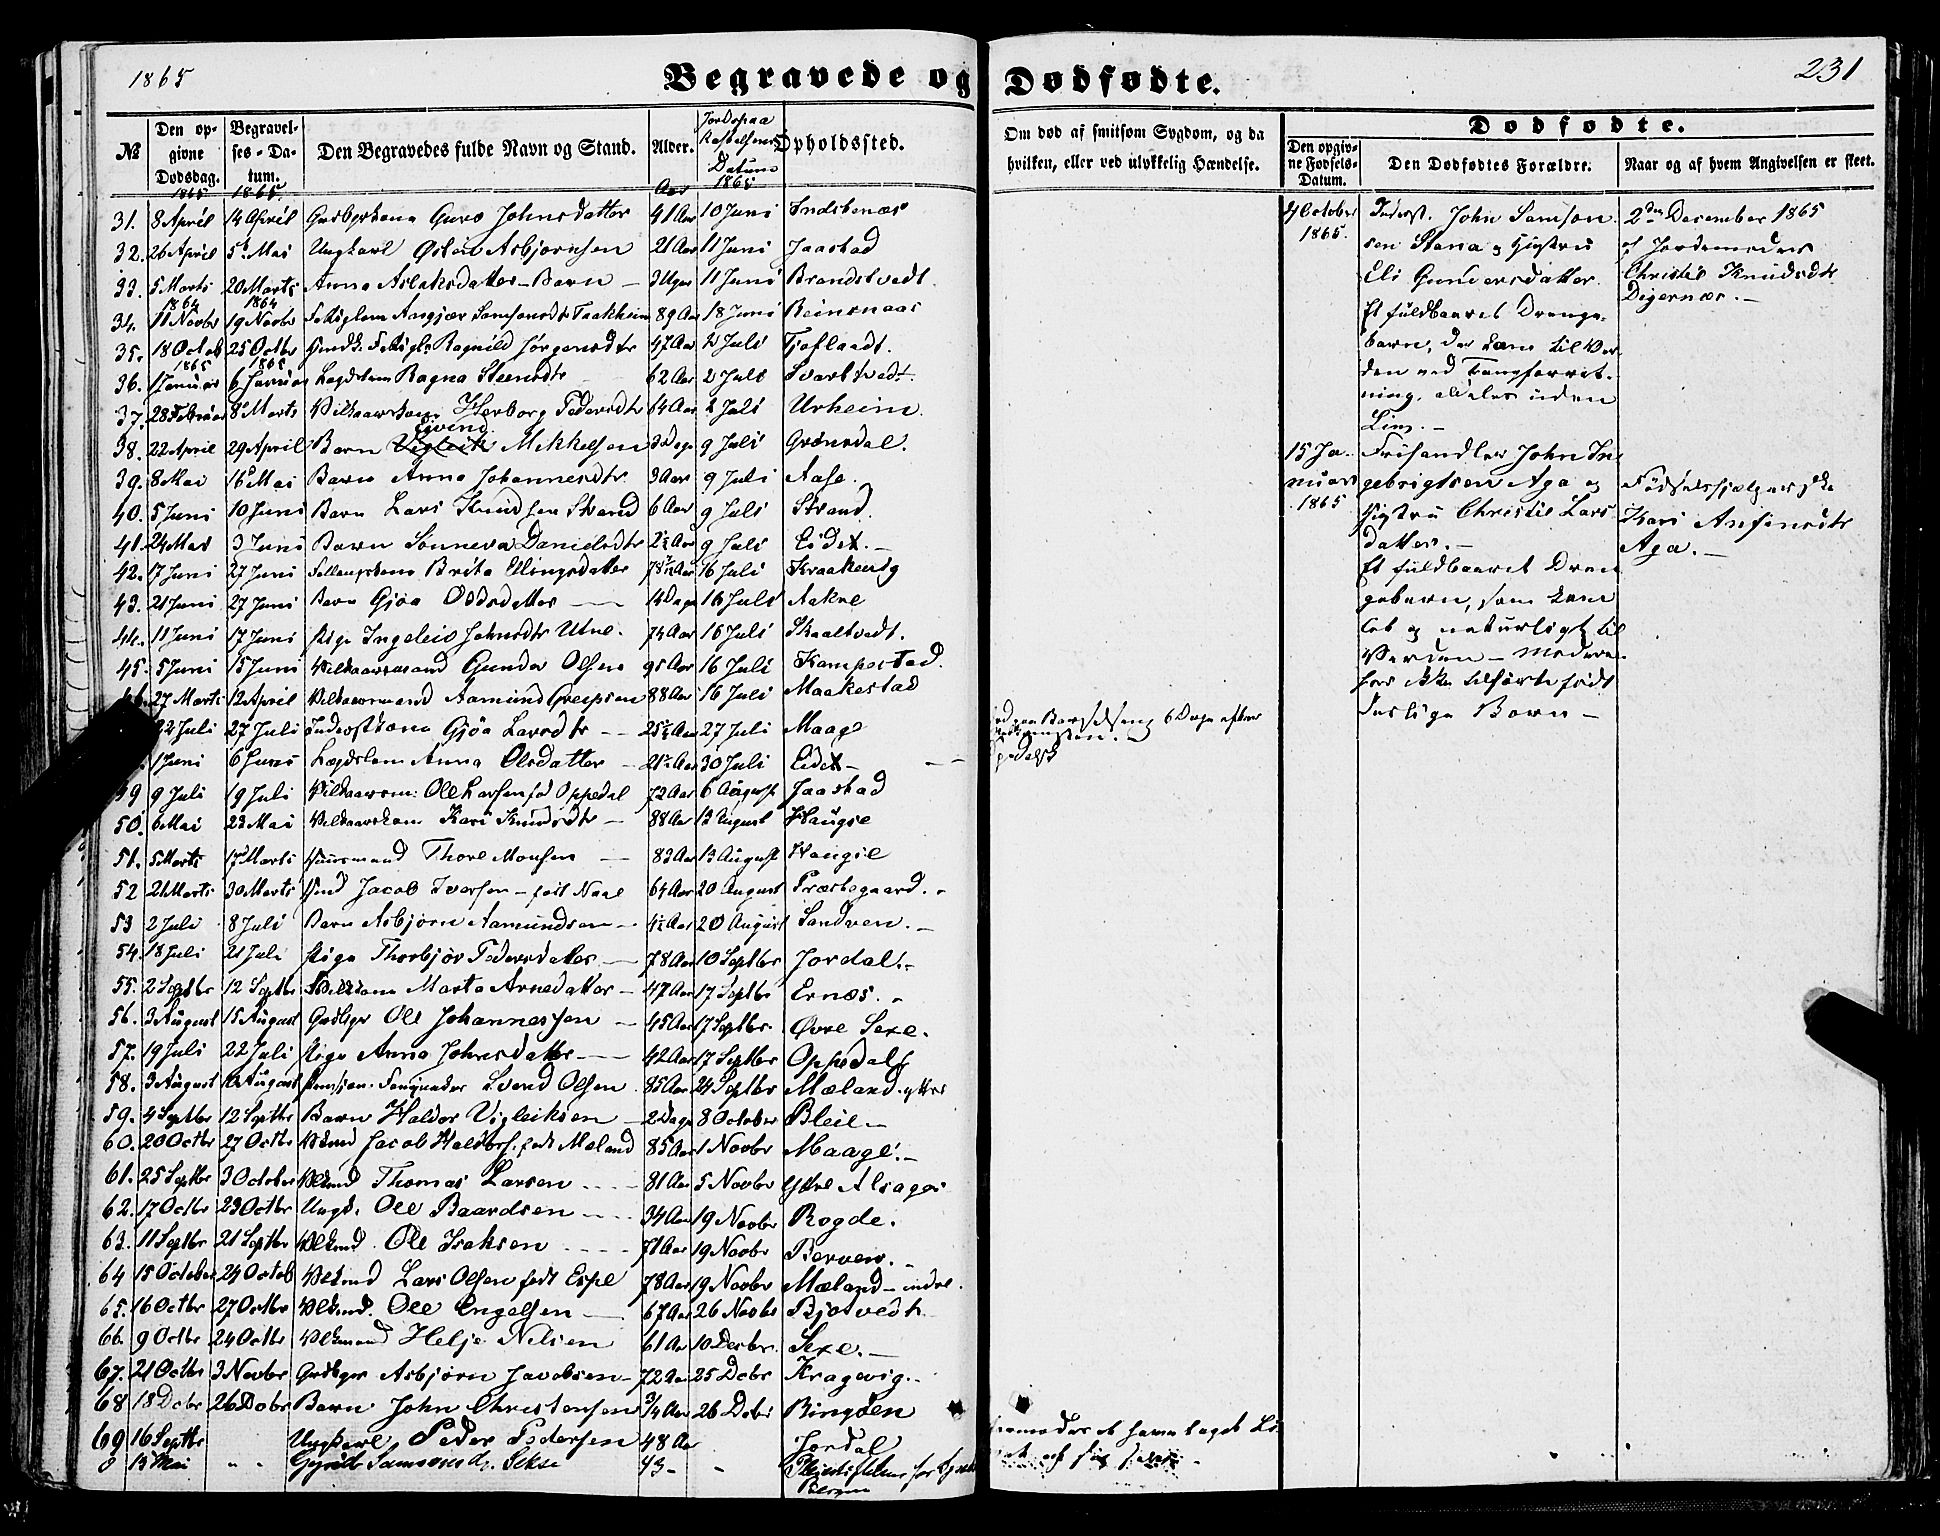 1865
Begravede og Dødfødte.
231
№
Den opgivne Dødsdag.
Begravelses-Datum.
Den Begravedes fulde Navn og Stand.
Alder.
Jordspaa Kastelsens Datum
Opholdssted.
Om død af smitsom Sygdom, og da hvilken, eller ved ulykkelig Hændelse.
Dødfødte.
Den opgivne Fødsels-Datum.
Den Dødfødtes Forældre.
Naar og af hvem Angivelsen er skeet.
1865 1865 Aar 1865
31. 8 April 14 April Guro Johnsdatter 41 Aar 10 Juni Indstenæs
32. 26 April 5 Mai Ungkarl Østen Asbjørnsen 21 Aar 11 Juni Jaastad
33. 5 Marts 20 Marts Anna Aslaksdatter - Barn 3 Uger 11 Juni Brandstvedt
1864 1864
34. 11 Novbr 19 Novbr Samsonsdtr 89 Aar 18 Juni Reinsnaas
35. 18 Octob 25 Octbr Ragnild Jørgensdtr 47 Aar 2 Juli Tjoflaadt.
1865 1865
36. 1 Januar 6 Januar Lægdslem Ragna Steensdtr 62 Aar 2 Juli Svartvedt.
37. 28 Februar 8 Marts Herborg Pedersdtr 64 Aar 2 Juli Urheim
Eivind
38. 22 April 29 April Barn Vigleik Mikkelsen 3 Dage 9 Juli Grønsdal.
39. 8 Mai 16 Mai Barn Anna Johannesdtr 3 Aar 9 Juli Aase.
40. 5 Juni 10 Juni Barn Lars Knudsen Strand 6 Aar 9 Juli Strand
41. 24 Mai 3 Juni Barn Sønneva Danielsdtr 2½ Aar 9 Juli Eidet.
42. 17 Juni 27 Juni Brita Ellingsdatter 16 Juli Kraakevig
43. 21 Juni 27 Juni Barn Gjøa Oddsdatter 14 Dage 16 Juli Aakre
44. 11 Juni 17 Juni Pige Ingeleiv Johnsdtr Utne. 74 Aar 16 Juli Skaaltvedt.
45. 5 Juni 15 Juni Vilkaarsmand Gunder Olsen 95 Aar 16 Juli Kampestad.
46. 27 Marts 12 April Vilkaarsmand Aamund Greipsen 88 Aar 16 Juli Maakestad
22 Juli 27 Juli Inderstkone Gjøa Larsdtr 25½ Aar 27 Juli Maage
1 Juni 6 Juni Lægdslem Anna Olsdatter 21½ Aar 30 Juli Eidet
49 9 Juli 19 Juli Ole Larsen fød Oppedal 72 Aar 6 August Jaastad
50. 6 Mai 23 Mai Vilkaarskone Kari Knudsdtr 88 Aar 13 August Haugse
51. 5 Marts 17 Marts Huusmand Thore Monsen 83 Aar 13 August Haugse
52 21 Marts 30 Marts Jacob Iversen - født Naae 64 Aar 20 August Præstegaard.
53 2 Juli 8 Juli Barn Asbjørn Aamundsen 4½ Aar 20 August Sandven.
54. 18 Juli 21 Juli Pige Thorbjør Pedersdatter 78 Aar 10 Septbr Jordal.
55. 2 Septbr 12 Septbr Marta Arnedatter 47 Aar 17 Septbr Ernæs.
56. 3 August 15 August Ole Johannessen 45 Aar 17 Septbr. Øvre Sexe.
57. 19 Juli 22 Juli Pige Anna Johnsdatter 42 Aar 17 Septbr Oppedal
58. 3 August August Svend Olsen 85 Aar 24 Septbr Mæland. yttre
59. 4 Septbr 12 Septbr Barn Haldor Vigleiksen 2 Dage 8 October Bleie
60. 20 Octbr 27 Octbr Jacob Haldors. født Mæland 85 Aar 1 Novbr Maage.
61. 25 Septbr 3 October Thomas Larsen 81 Aar 5 Novbr Alsager
62. 17 Octbr 23 Octbr Ungk. Ole Baardsen 34 Aar 19 Novbr Rogde.
63. 11 Septbr 21 Septbr Ole Isaksen 71 Aar 19 Novbr Berven.
64 15 October 24 Octob Lars Olsen født Espe 78 Aar 19 Novbr Mæland - indre.
65. 16 Octbr 27 Octbr Ole Engelsen 67 Aar 26 Novbr Bjotvedt
66. 9 Octbr 24 Octbr Helje Nilsen 61 Aar 10 Decbr. Sexe.
67. 21 Octbr 3 Novbr Asbjørn Jacobsen 72 Aar 25 Debr Kragevig.
68 18 Debr 26 Debr Barn John Christensen ¾ Aar 26 Debr Ringøen
69 16 Septbr Ungkarl Peder Pedersen 48 Aar Jordal
13 Mai Samsonsdtr. Sekse 43 Pleiestiftelsen for Bergen
Barselseng 6 Dage efter
spedalsk
4 October 1865.
Inderst. John Samson
sen Stana og Hustru
Eli Gundersdatter.
Et fuldbaaret Drenge-
barn, der kom til Ver-
den ved Tangforret-
ning, aldeles uden
Liv.
2den December 1865
af Jordemoder
Christie Knudsdtr
Digernæs.
15 Januar 1865
John In
gebrigtsen Aga og
Hustru Christie Lars
datter.
Et fuldbaaret Dren
gebarn, som kom
let og naturligt til
Verden - Moderen
har ikke tilforn født
Børn
Fødselshjælperske
Kari Anfinsdtr
Aga.
have taget Li